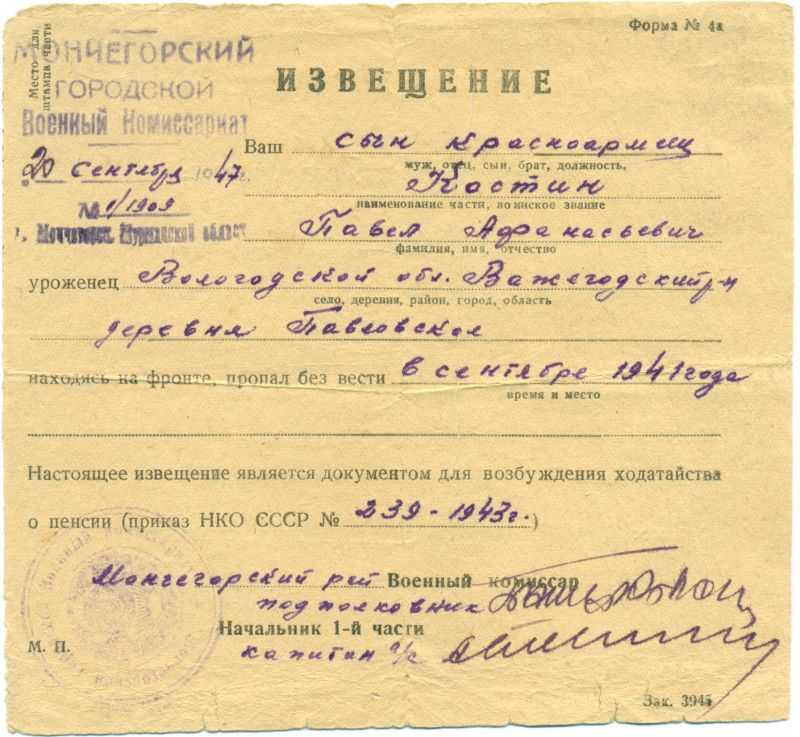 Форма № 4а
Место для
штампа части
МОНЧЕГОРСКИЙ
ГОРОДСКОЙ
Военный Комиссариат
20 сентября 1947 г.
№ 1/1909
г. Мончегорск, Мурманской област
ИЗВЕЩЕНИЕ
Ваш сын красноармеец
муж, отец, сын, брат, должность,
Костин
наименование части, воинское звание
Павел Афанасьевич
фамилия, имя, отчество
уроженец Вологодской обл. Важегодский р-н
село, деревня, район, город, область
деревня Павловское
находясь на фронте, пропал без вести в сентябре 1941 года
время и место
Настоящее извещение является документом для возбуждения ходатайства
о пенсии (приказ НКО СССР № 239-1943г.)
Мончегорский рай Военный комиссар
подполковник
Начальник 1-й части
капитан а/с
М. П.
Зак. 3945